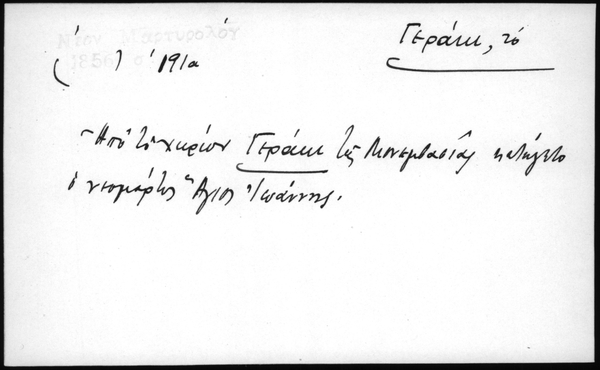 Γεράκι, τό
Νέον Μαρτυρολόγ
1856 σ 191α
Ἀπό τό χωρίον Γεράκι τῆς Μονεμβασίας κατάγεται
ὁ νεομάρτυς Ἅγιος Ἰωάννης.